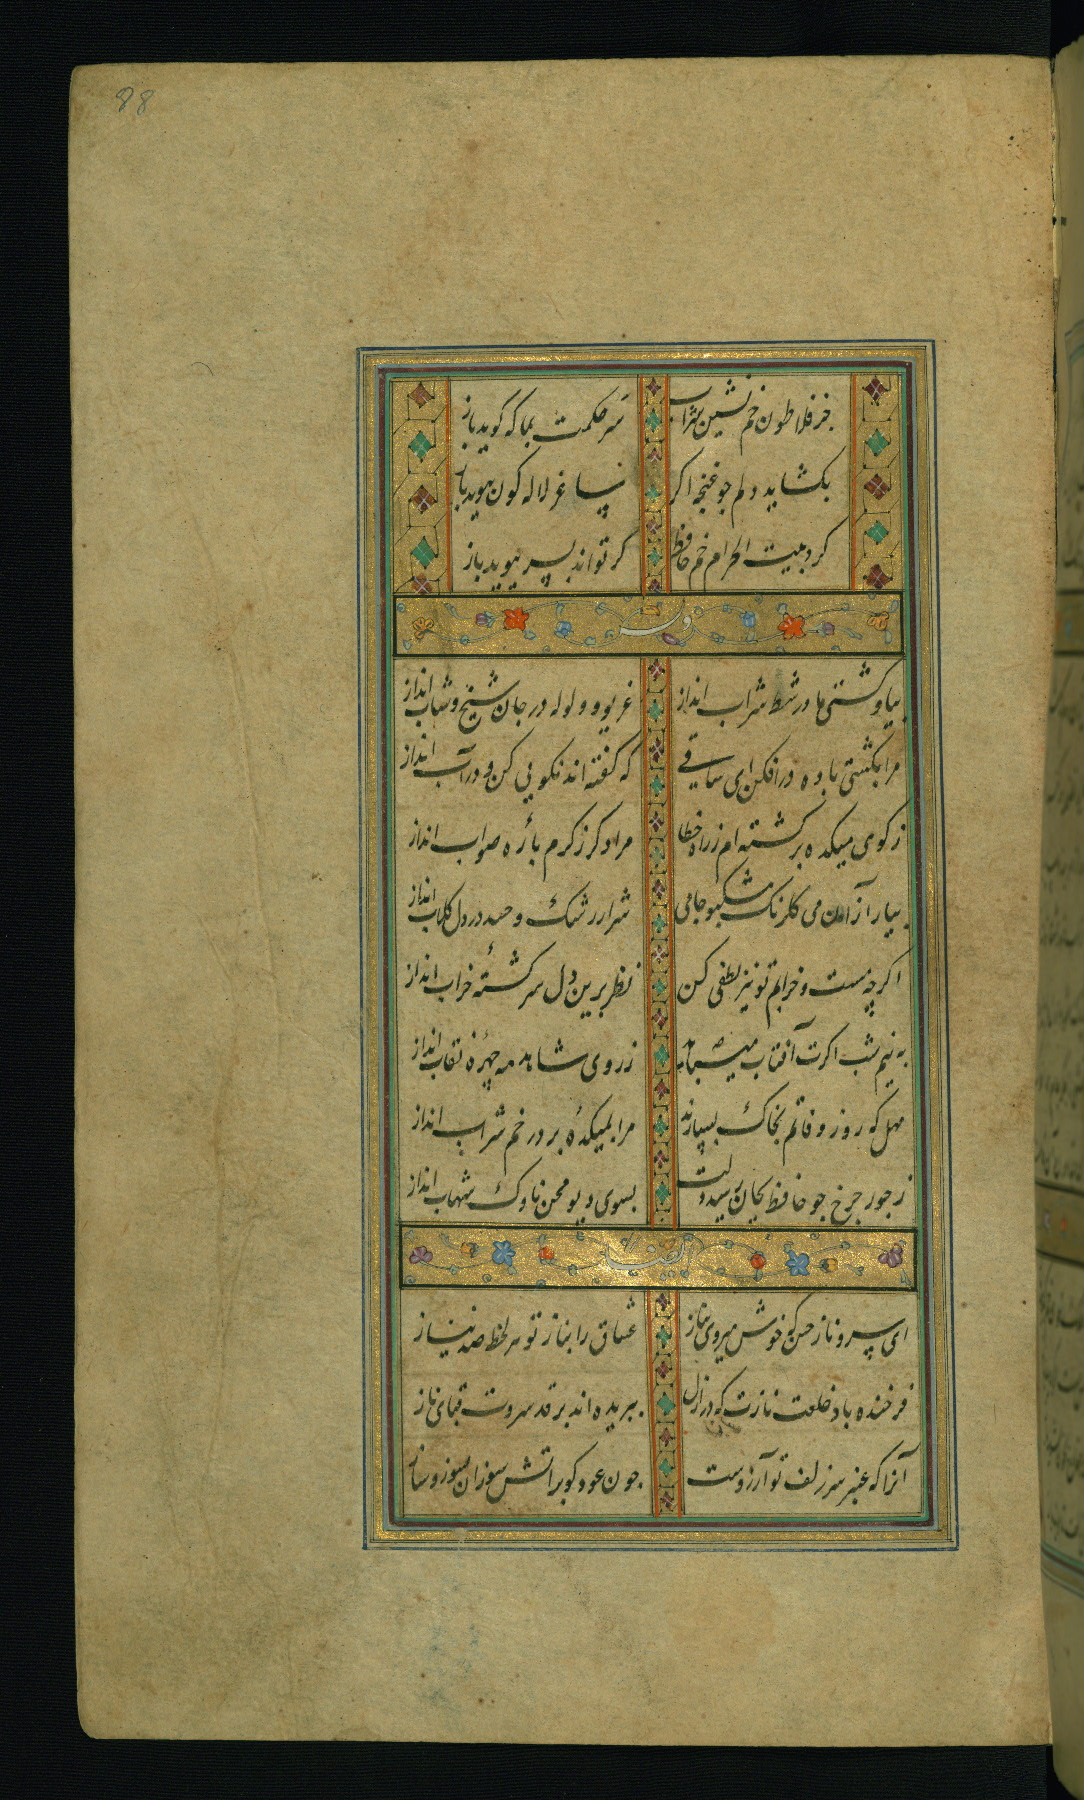 88
جز فلاطون خم نشین شراب
سر حکمت بما که کوید باز
بکشاید دلم جو غنچه اکر
ساغر لاله کون ببوید باز
کرد بیت الحرام خم حافظ
کر تواند بسر بپوید باز
وله
بیا و کشتی ما در شط شراب انداز
غریو و ولوله در جان شیخ و شاب انداز
مرا بکشتی باده در افکن ای ساقی
که کفته اند نکویی کن و در آب انداز
ز کوی میکده برکشته ام ز راه خطا
مرا دکر ز کرم با ره صواب انداز
بیار از آن می کلرنک مشکبو جامی
شرار رشک و حسد در دل کلاب انداز
اکرچه مست و خرابم تو نیز لطفی کن
نظر برین دل سرکشتهٔ خراب انداز
به نیم شب اکرت آفتاب میباید
ز روی شاهد مه چهره نقاب انداز
مهل که روز وفاتم بخاک بسپارند
مرا بمیکده بر در خم شراب انداز
ز جور جرخ جو حافظ بجان رسید دلت
بسوی دیو محن ناوک شهاب انداز
ایضا
ای سرو ناز حسن که خوش میروی بناز
عشاق را بناز تو هر لحظه صد نیاز
فرخنده باد خلعت نازت که در ازل
ببریده اند بر قد سروت قبای ناز
آنرا که عنبر سر زلف تو آرزوست
جون عود کو بر آتش سوزان بسوز و ساز